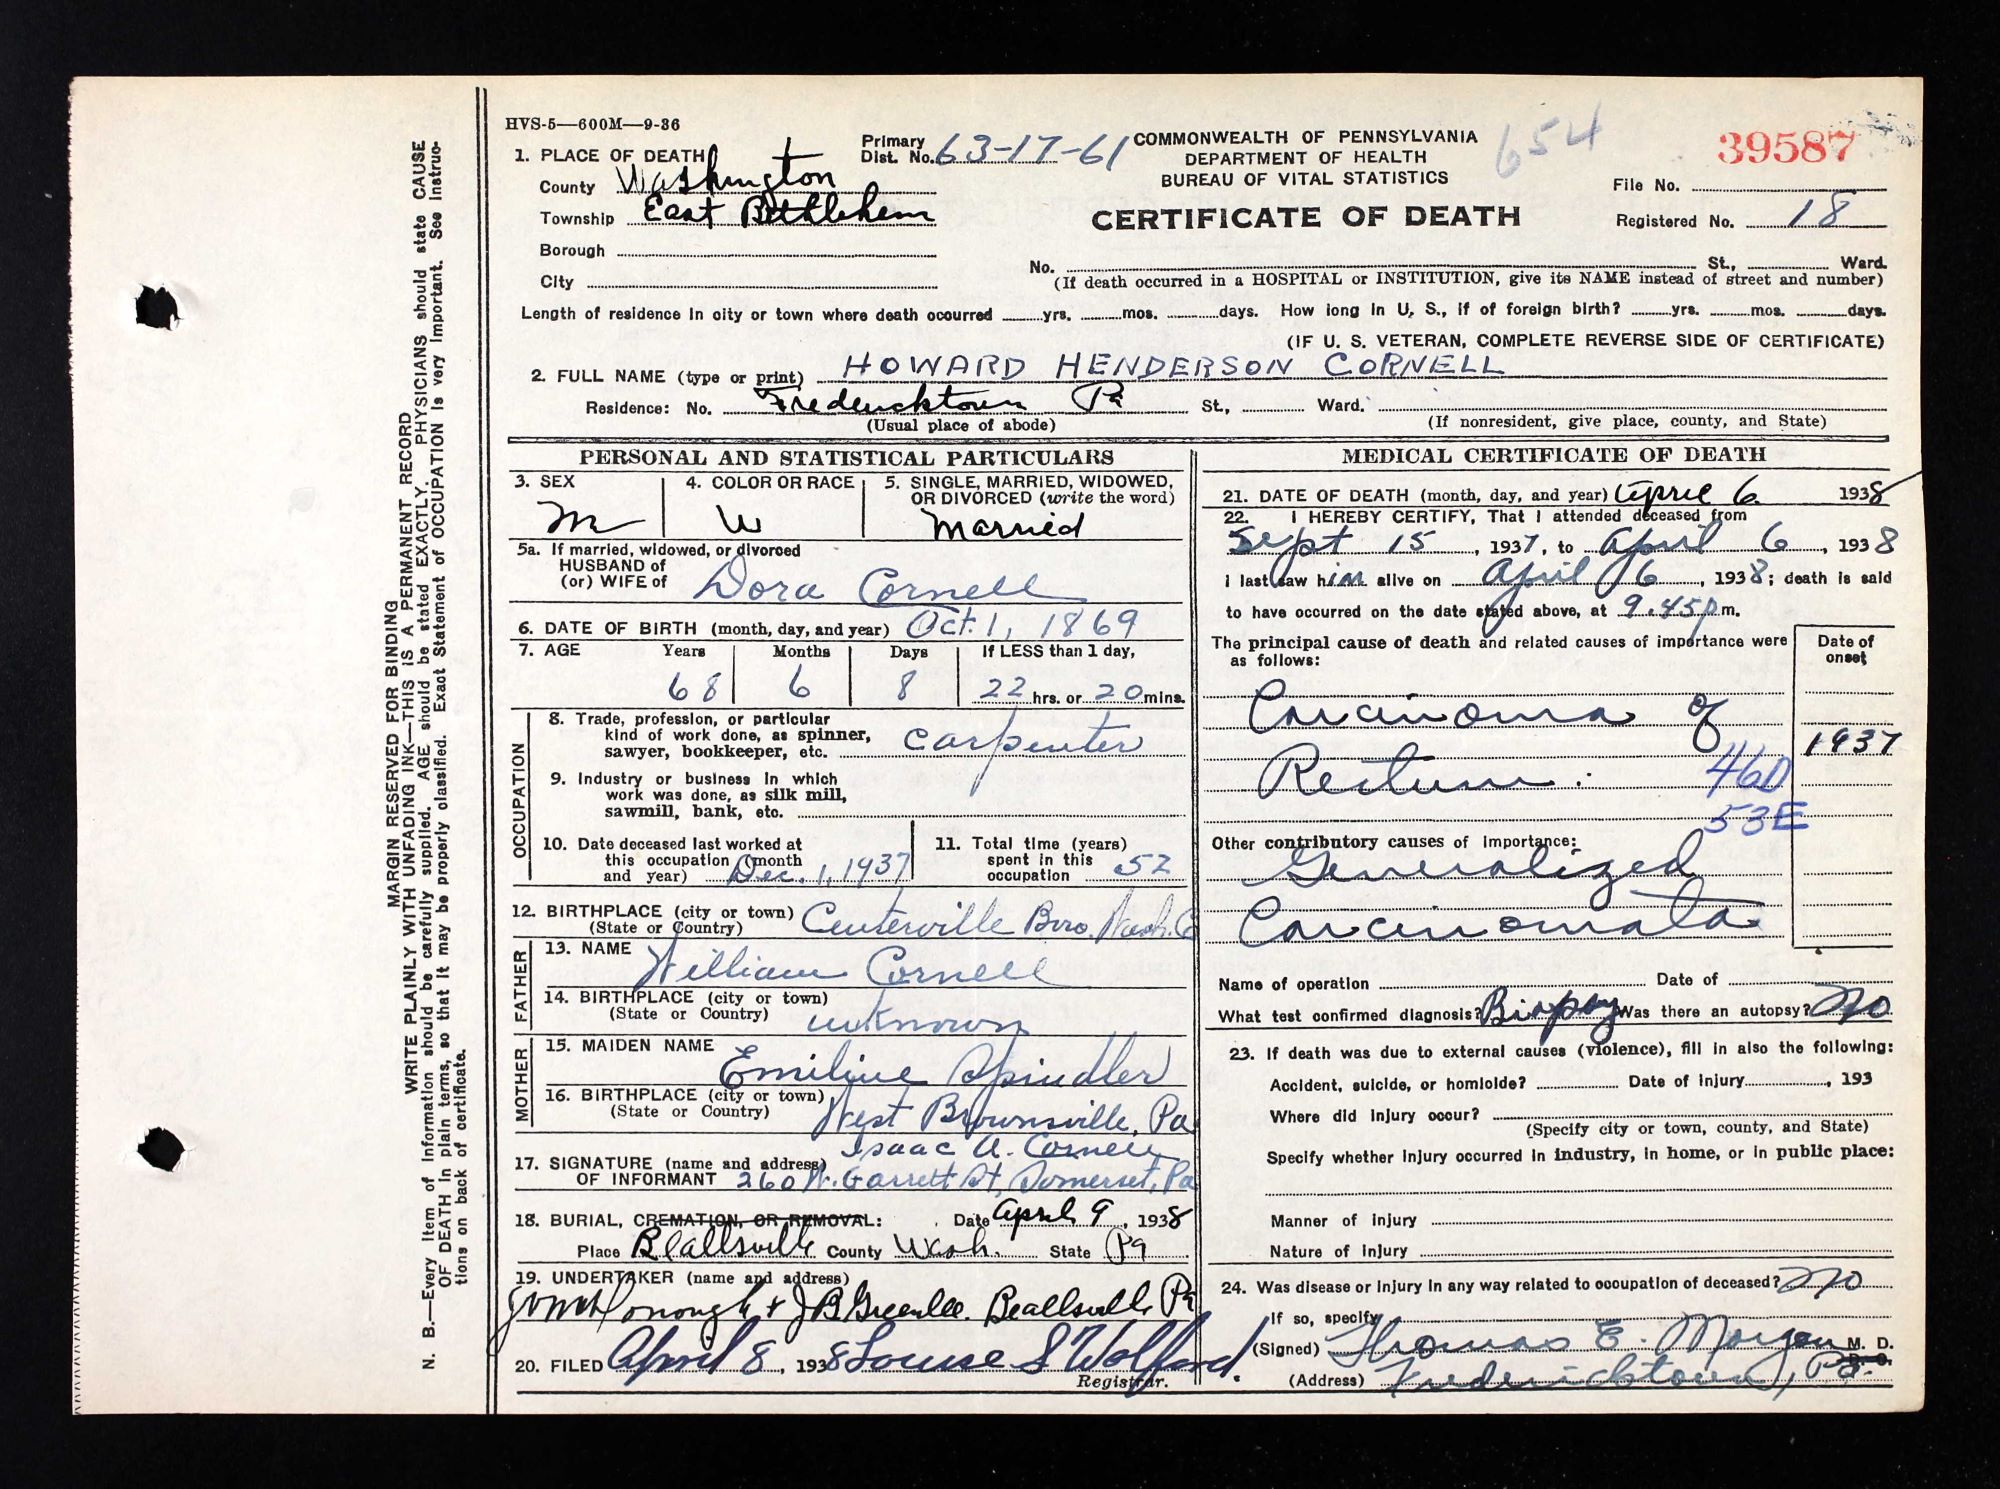 HVS-5—600M—9-36
1. PLACE OF DEATH
County Washington
Township East Bethlehem
Borough
City
Primary
Dist. No. 63-17-61
COMMONWEALTH OF PENNSYLVANIA
DEPARTMENT OF HEALTH
BUREAU OF VITAL STATISTICS
CERTIFICATE OF DEATH
654
39587
File No.
Registered No. 18
No. St., Ward.
(If death occurred in a HOSPITAL or INSTITUTION, give its NAME instead of street and number)
Length of residence in city or town where death occurred yrs. mos. days. How long in U. S., if of foreign birth? yrs. mos. days.
(IF U. S. VETERAN, COMPLETE REVERSE SIDE OF CERTIFICATE)
2. FULL NAME (type or print) HOWARD HENDERSON CORNELL
Residence: No. Fredericktown Pa St., Ward.
(Usual place of abode) (If nonresident, give place, county, and State)
PERSONAL AND STATISTICAL PARTICULARS
3. SEX
M
4. COLOR OR RACE
W
5. SINGLE, MARRIED, WIDOWED,
OR DIVORCED (write the word)
Married
5a. If married, widowed, or divorced
HUSBAND of
(or) WIFE of Dora Cornell
6. DATE OF BIRTH (month, day, and year) Oct. 1, 1869
7. AGE Years Months Days If LESS than 1 day,
68 6 8 22 hrs. or 20 mins.
OCCUPATION
8. Trade, profession, or particular
kind of work done, as spinner,
sawyer, bookkeeper, etc. Carpenter
9. Industry or business in which
work was done, as silk mill,
sawmill, bank, etc.
10. Date deceased last worked at
this occupation (month
and year) Dec. 1, 1937
11. Total time (years)
spent in this
occupation 52
12. BIRTHPLACE (city or town) Centerville Boro. Wash. Co
(State or Country)
FATHER
13. NAME William Cornell
14. BIRTHPLACE (city or town)
(State or Country) unknown
MOTHER
15. MAIDEN NAME Emiline Spindler
16. BIRTHPLACE (city or town)
(State or Country) West Brownsville, Pa
Isaac A. Cornell
17. SIGNATURE (name and address)
OF INFORMANT 260 W. Garrett St, Somerset, Pa
18. BURIAL, CREMATION, OR REMOVAL: Date April 9, 1938
Place Beallsville County Wash. State Pa
19. UNDERTAKER (name and address)
McDonough & J B Greenlee. Beallsville Pa
20. FILED April 8, 1938 Louise S Wolfford.
Registrar.
MEDICAL CERTIFICATE OF DEATH
21. DATE OF DEATH (month, day, and year) April 6. 1938
22. I HEREBY CERTIFY, That I attended deceased from
Sept 15, 1937, to April 6, 1938
I last saw him alive on April 6, 1938; death is said
to have occurred on the date stated above, at 9.45 p m.
The principal cause of death and related causes of importance were
as follows:
Date of
onset
Carcinoma of
1937
Rectum.
46D
53E
Other contributory causes of importance:
Generalized
Carcinomata
Name of operation Date of
What test confirmed diagnosis? Biopsy Was there an autopsy? no
23. If death was due to external causes (violence), fill in also the following:
Accident, suicide, or homicide? Date of injury , 193
Where did injury occur?
(Specify city or town, county, and State)
Specify whether injury occurred in industry, in home, or in public place:
Manner of injury
Nature of injury
24. Was disease or injury in any way related to occupation of deceased? no
If so, specify
(Signed) Thomas E. Morgan M. D.
D. O.
(Address) Fredericktown, Pa.
MARGIN RESERVED FOR BINDING
WRITE PLAINLY WITH UNFADING INK—THIS IS A PERMANENT RECORD
N. B.—Every item of information should be carefully supplied. AGE should be stated EXACTLY. PHYSICIANS should state CAUSE
OF DEATH in plain terms, so that it may be properly classified. Exact Statement of OCCUPATION is very important. See instruc-
tions on back of certificate.